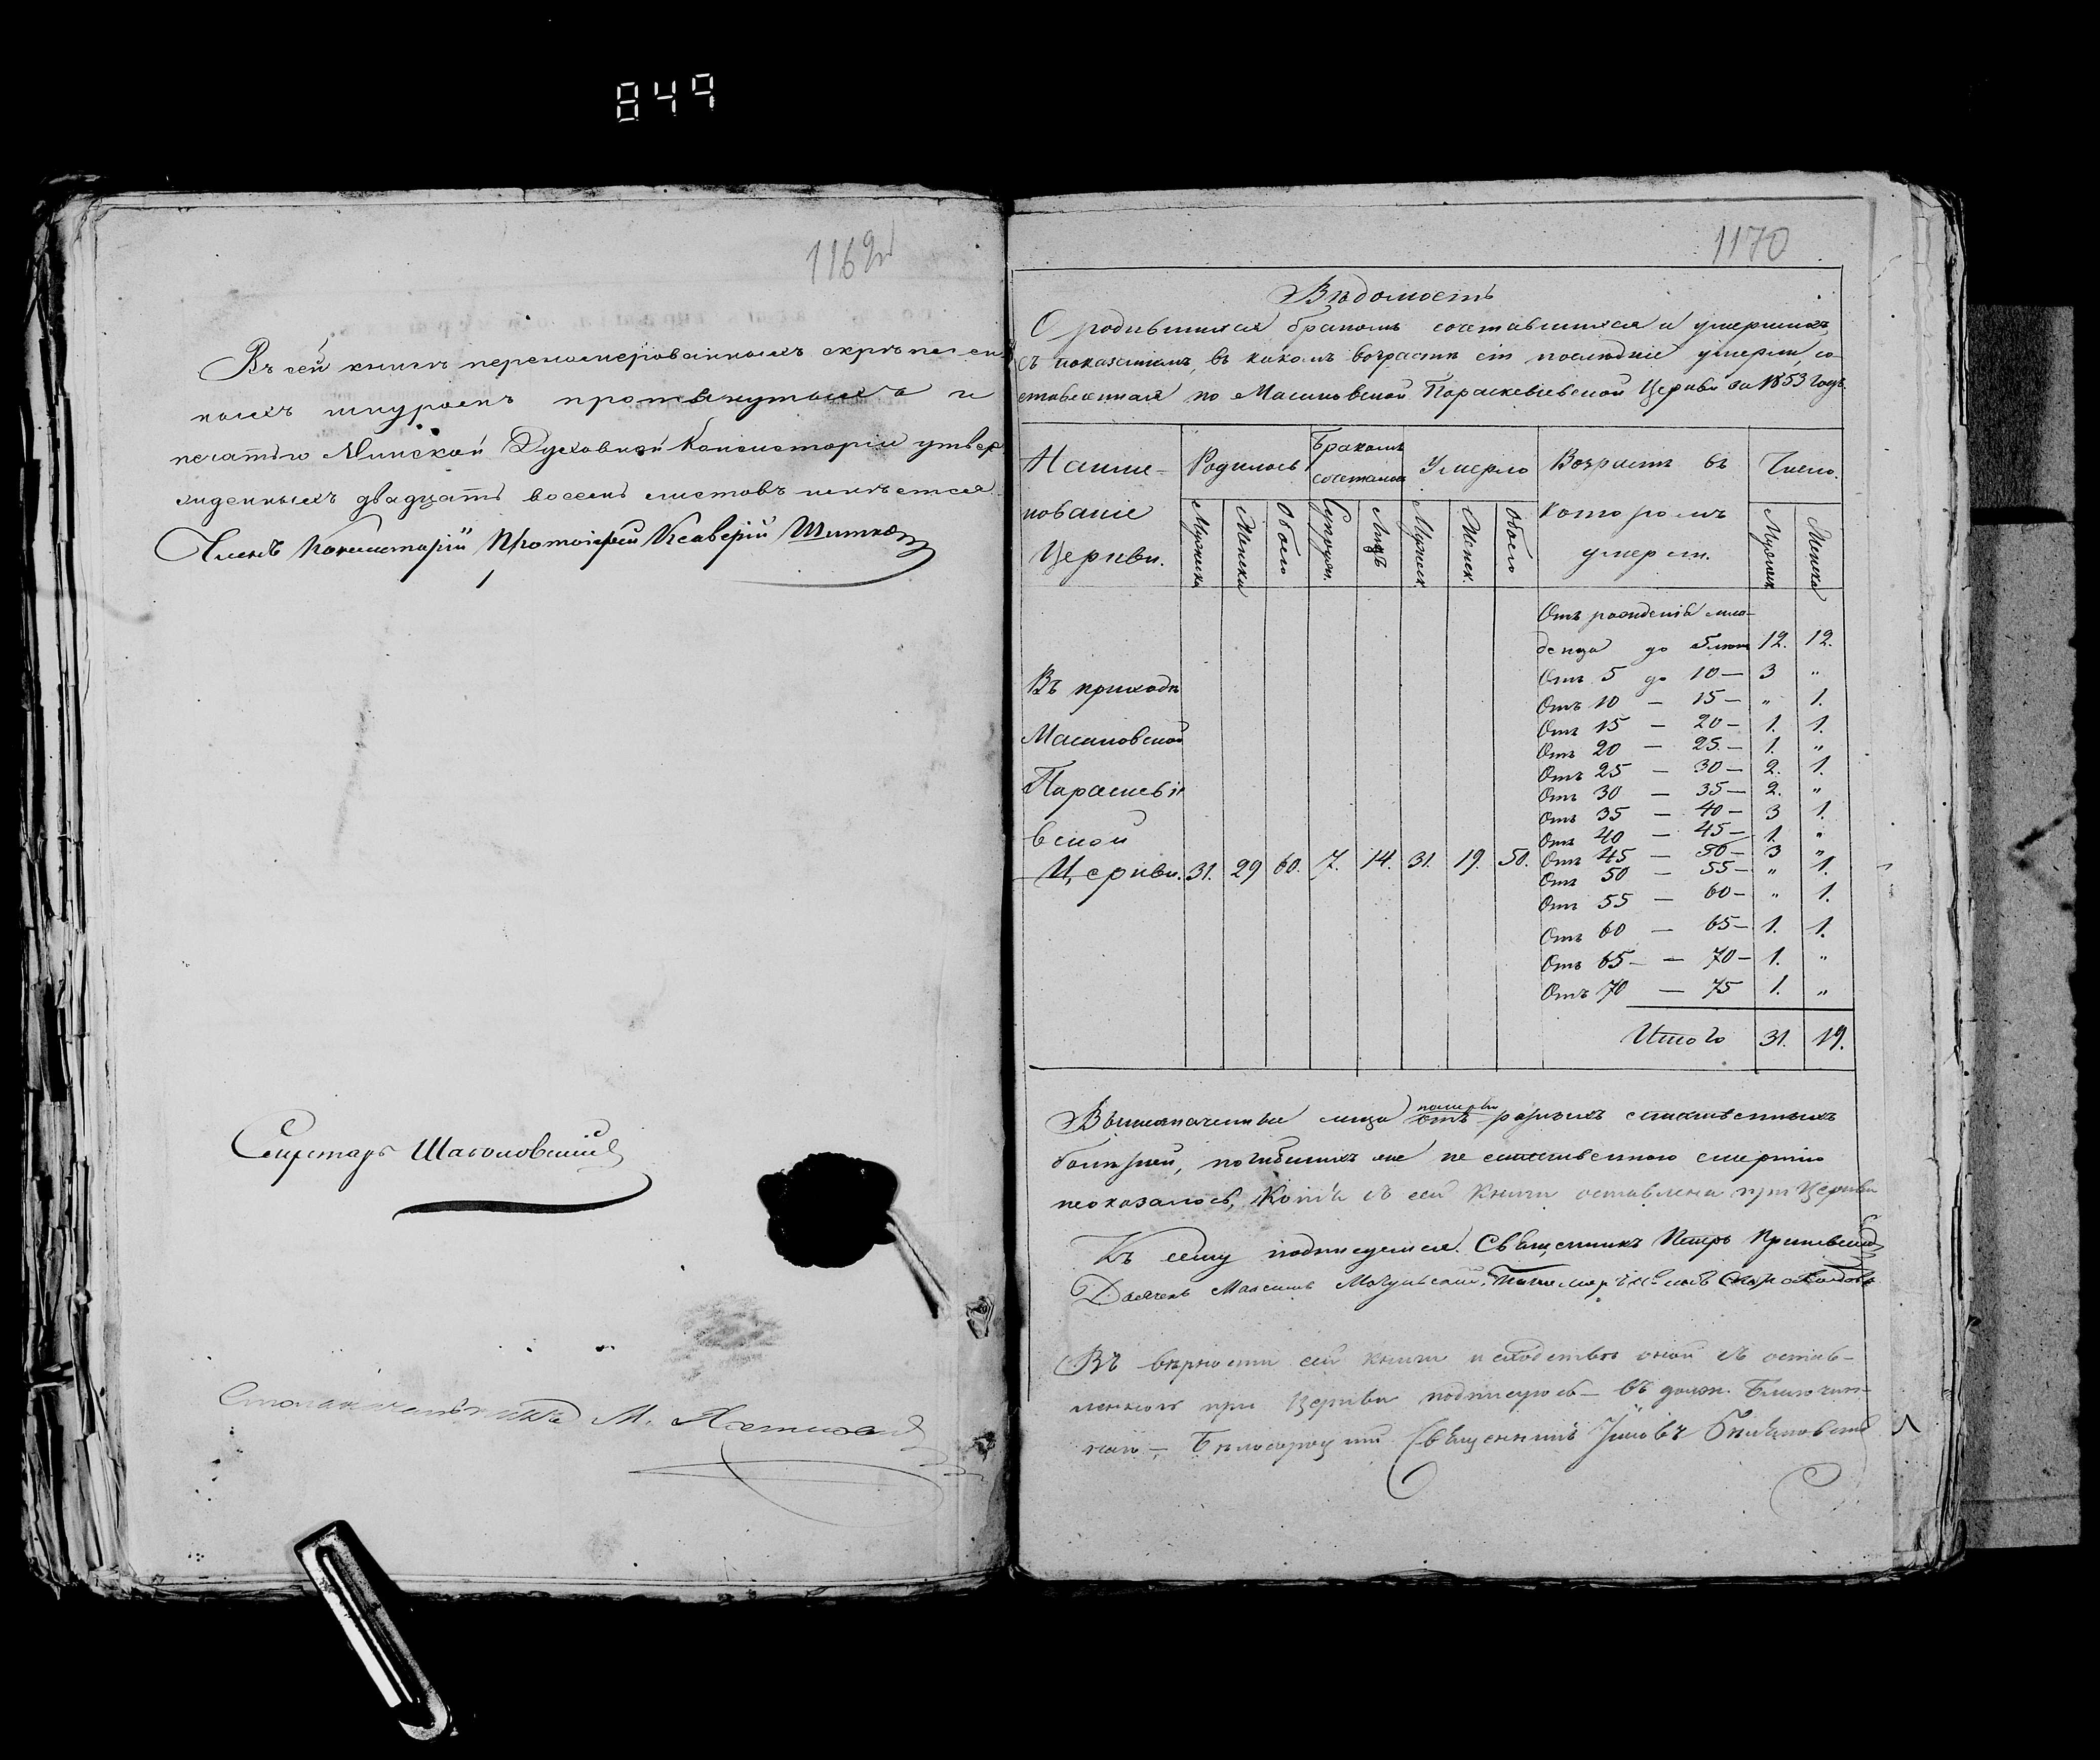 849
1169
Въ сей книгѣ перенумерованныхъ скрѣплен
ныхъ шнуромъ протянутыхъ и
печатью Минской Духовной Консисторіи утвер
жденныхъ двадцать восемь листовъ имѣется
Членъ Консисторіи Протоіерей Ксаверій
Секретарь
М.
1170
Вѣдомость
О родившихся бракомъ сочетавшихся и умершихъ
съ показаніемъ, въ какомъ возрастѣ сіи послѣдніе умерли, со
ставленная по Масиновской Параскевіевской Церкви за 1853 годъ.
Наиме- Родилось Бракомъ сочеталось Умерло Возрастъ въ Число.
нованіе Мужеска Женска Обоего Супруж. Лицъ Мужеск. Женск. Обоего которомъ Мужеск. Женска
Церкви. умерли.
Отъ рожденія мла-
денца до 5 лѣтъ 12. 12.
Отъ 5 до 10 — 3 "
Въ приходѣ
Отъ 10 — 15 — " 1.
Отъ 15 — 20 — 1. 1.
Масиновской
Отъ 20 — 25. — 1. "
Отъ 25 — 30 — 2. 1.
Параскеві
Отъ 30 — 35 — 2. "
Отъ 35 — 40 — 3 1.
вской
Отъ 40 — 45 — 1. "
Церкви. 31. 29 60. 7. 14. 31. 19. 50. Отъ 45 — 50 — 3 "
Отъ 50 — 55 — " 1.
Отъ 55 — 60 — " 1.
Отъ 60 — 65 — 1. 1.
Отъ 65 — — 70 — 1. "
Отъ 70 — 75 1. "
Итого 31. 19.
Вышеозначенные лица померли отъ разныхъ естественныхъ
болѣзней, погибшихъ же не естественною смертію
неоказалось, Копія съ сей книги оставлена при Церкви
Къ сему подписуемся. Священникъ Петръ
Дьячекъ Максимъ Пономарь
Въ вѣрности сей книги и сходствѣ оной съ остав-
ленною при Церкви подписуюсь — въ долж. Благочин-
наго — Священникъ